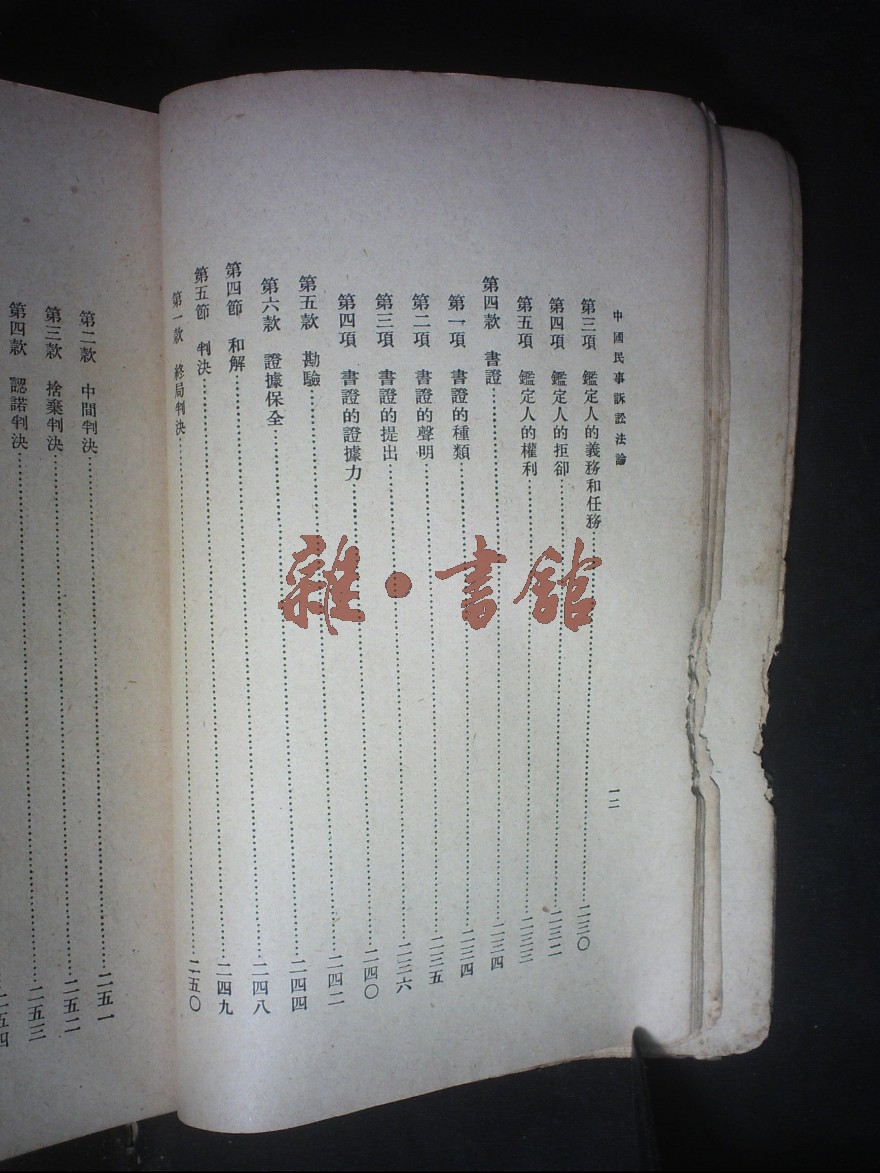 中國民事訴訟法論 一二
第三項 鑑定人的義務和任務……二三〇
第四項 鑑定人的拒卻……二三二
第五項 鑑定人的權利……二三三
第四款 書證……二三四
第一項 書證的種類……二三四
第二項 書證的聲明……二三五
第三項 書證的提出……二三六
第四項 書證的證據力……二四〇
第五款 勘驗……二四二
第六款 證據保全……二四四
第四節 和解……二四八
第五節 判決……二四九
第一款 終局判決……二五〇
第二款 中間判決……二五一
第三款 捨棄判決……二五二
第四款 認諾判決……二五三
二五四
雜·書館